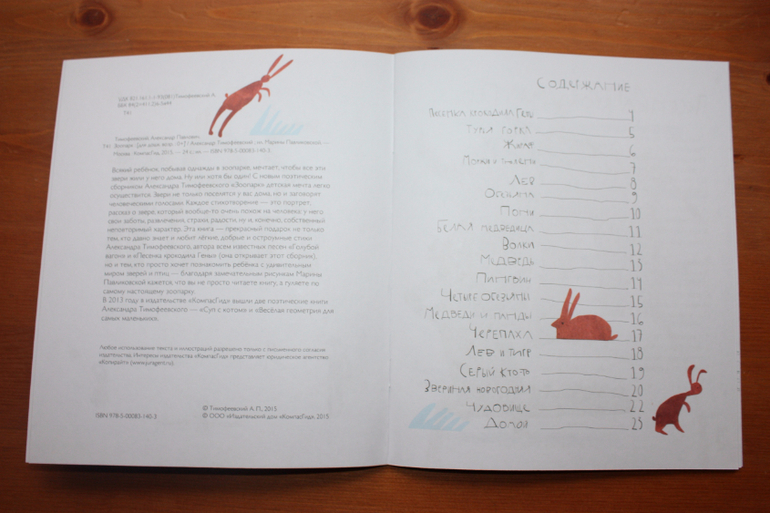 Тимофеевский Александр Павлович.
Всякий ребёнок, побывав однажды в зоопарке, мечтает, чтобы все эти
звери жили у него дома. Ну или хотя бы один! С новым поэтическим
сборником Александра Тимофеевского «Зоопарк» детская мечта легко
осуществится. Звери не только поселятся у вас дома, но и заговорят
человеческими голосами. Каждое стихотворение — это портрет,
рассказ о звере, который вообще-то очень похож на человека: у него
свои заботы, развлечения, страхи, радости, ну и, конечно, собственный
неповторимый характер. Эта книга — прекрасный подарок не только
тем, кто давно знает и любит лёгкие, добрые и остроумные стихи
Александра Тимофеевского, автора всем известных песен «Голубой
вагон» и «Песенка крокодила Гены» (она открывает этот сборник),
но и тем, кто просто хочет познакомить ребёнка с удивительным
миром зверей и птиц — благодаря замечательным рисункам Марины
Павликовской кажется, что вы не просто читаете книгу, а гуляете по
самому настоящему зоопарку.
В 2013 году в издательстве «КомпасГид» вышли две поэтические книги
Александра Тимофеевского — «Суп с котом» и «Весёлая геометрия для
самых маленьких».
Любое использование текста и иллюстраций разрешено только с письменного согласия
издательства. Интересы издательства «КомпасГид» представляет юридическое агентство
«Копирайт»
ISBN 978-5-00083-140-3
© Тимофеевский А. П., 2015
© ООО «Издательский дом «КомпасГид», 2015
СОДЕРЖАНИЕ
ПЕСЕНКА КРОКОДИЛА ГЕНЫ 4
5
ЖИРАФ 6
7
ЛЕВ 8
9
ПОНИ 10
БЕЛАЯ МЕДВЕДИЦА 11
ВОЛКИ 12
МЕДВЕДЬ 13
ПИНГВИН 14
ЧЕТЫРЕ ОБЕЗЬЯНЫ 15
МЕДВЕДИ И ПАНДЫ 16
ЧЕРЕПАХА 17
ЛЕВ И ТИГР 18
СЕРЫЙ КТО-ТО 19
ЗВЕРИНАЯ НОВОГОДНЯЯ 20
ЧУДОВИЩЕ 22
ДОМОЙ 23